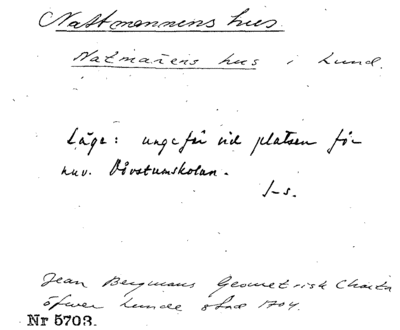 Nattmannens hus
Natmañens hus i Lund.
Läge: ungefär vid platsen för
nuv. Dövstumskolan.
I-s.
Jean Bergmans Geometrisk Charta
öfwer Lunde stad 1704.
Nr 5703.